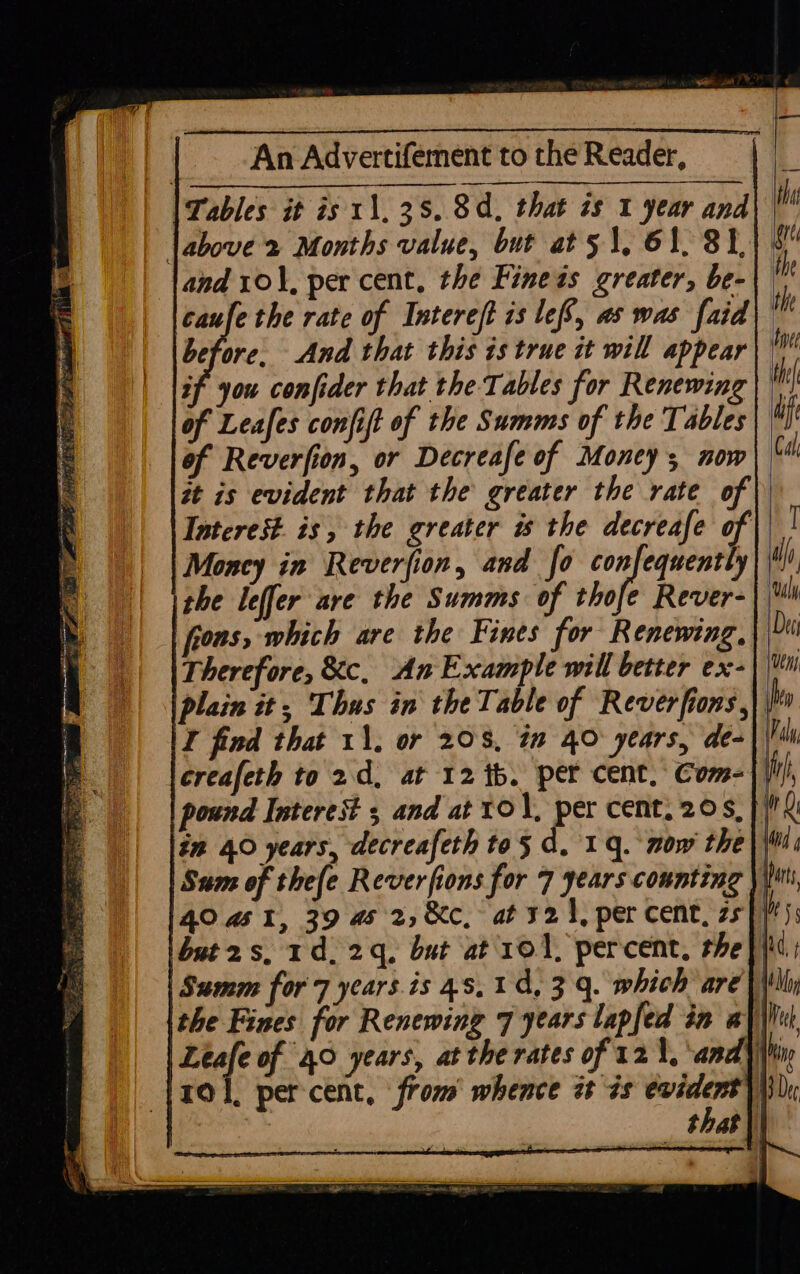 An Advertiſement to the Reader,
Tables it is 1l. 3s. 8d. that is 1 year and
above 2 Months value, but at 5l. 6l. 8l.
and 10l. per cent. the Fine is greater, be-
cauſe the rate of Intereſt is leſs, as was ſaid
before. And that this is true it will appear
if you conſider that the Tables for Renewing
of Leaſes conſiſt of the Summs of the Tables
of Reverſion, or Decreaſe of Money; now
it is evident that the greater the rate of
Intereſt is, the greater is the decreaſe of
Money in Reverſion, and ſo conſequently
the leſſer are the Summs of thoſe Rever-
ſions, which are the Fines for Renewing.
Therefore, &c. An Example will better ex-
plain it; Thus in the Table of Reverſions,
I find that 1l. or 20s. in 40 years, de-
creaſeth to 2d. at 12 ℔. per cent. Com-
pound Intereſt; and at 10l. per cent. 20s.
in 40 years, decreaſeth to 5 d. 1q. now the
Sum of theſe Reverſions for 7 years counting
40 as 1, 39 as 2, &c. at 12l. per cent. is
but 2s. 1d. 2q. but at 10l. per cent. the
Summ for 7 years is 4s. 1d. 3q. which are
the Fines for Renewing 7 years lapſed in a
Leaſe of 40 years, at the rates of 12l. and
10l. per cent. from whence it is evident
that